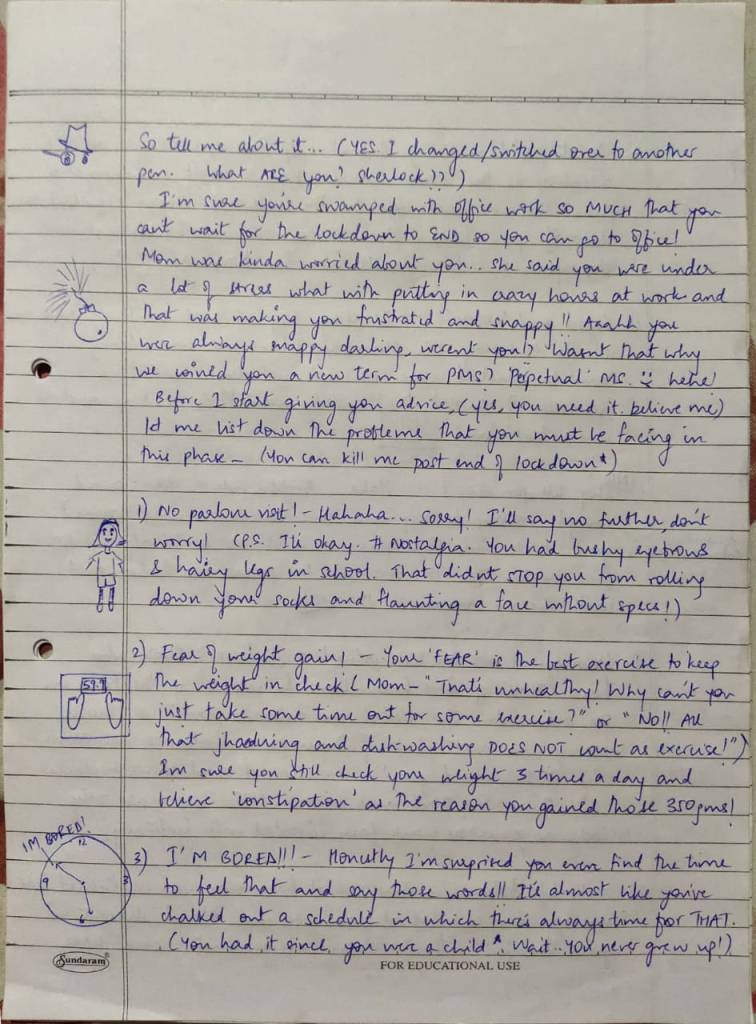 So tell me about it... (YES. I changed/switched over to another
pen. What ARE you? Sherlock??)
I'm sure you're swamped with office work SO MUCH that you
can't wait for the lockdown to END so you can go to office!
Mom was kinda worried about you.. She said you were under
a lot of stress what with putting in crazy hours at work and
that was making you frustrated and snappy!! Aaahh you
were always snappy darling, weren't you!? Wasn't that why
we coined you a new term for PMS? 'Perpetual' MS. hehe!
Before I start giving you advice, (yes, you need it. believe me)
let me list down the problems that you must be facing in
this phase - (You can kill me post end of lockdown*)
1) No parlour visit! - Hahaha... Sorry! I'll say no further, don't
worry! (P.S. It's okay. # Nostalgia. You had bushy eyebrows
& hairy legs in school. That didn't STOP you from rolling
down your socks and flaunting a face without specs!)
2) Fear of weight gain! - Your 'FEAR' is the best exercise to keep
59.7
the weight in check (Mom - "That's unhealthy! Why can't you
just take some time out for some exercise?" or "NO!! All
that jhaduing and dish-washing DOES NOT count as exercise!")
I'm sure you still check your weight 3 times a day and
believe 'constipation' as the reason you gained those 350gms!
I'M BORED!
12
3
6
9
3) I'M BORED!!! - Honestly I'm surprised you even find the time
to feel that and say those words!! It's almost like you've
chalked out a schedule in which there's always time for THAT.
(You had it since you were a child. Wait.. You never grew up!)
Sundaram
FOR EDUCATIONAL USE